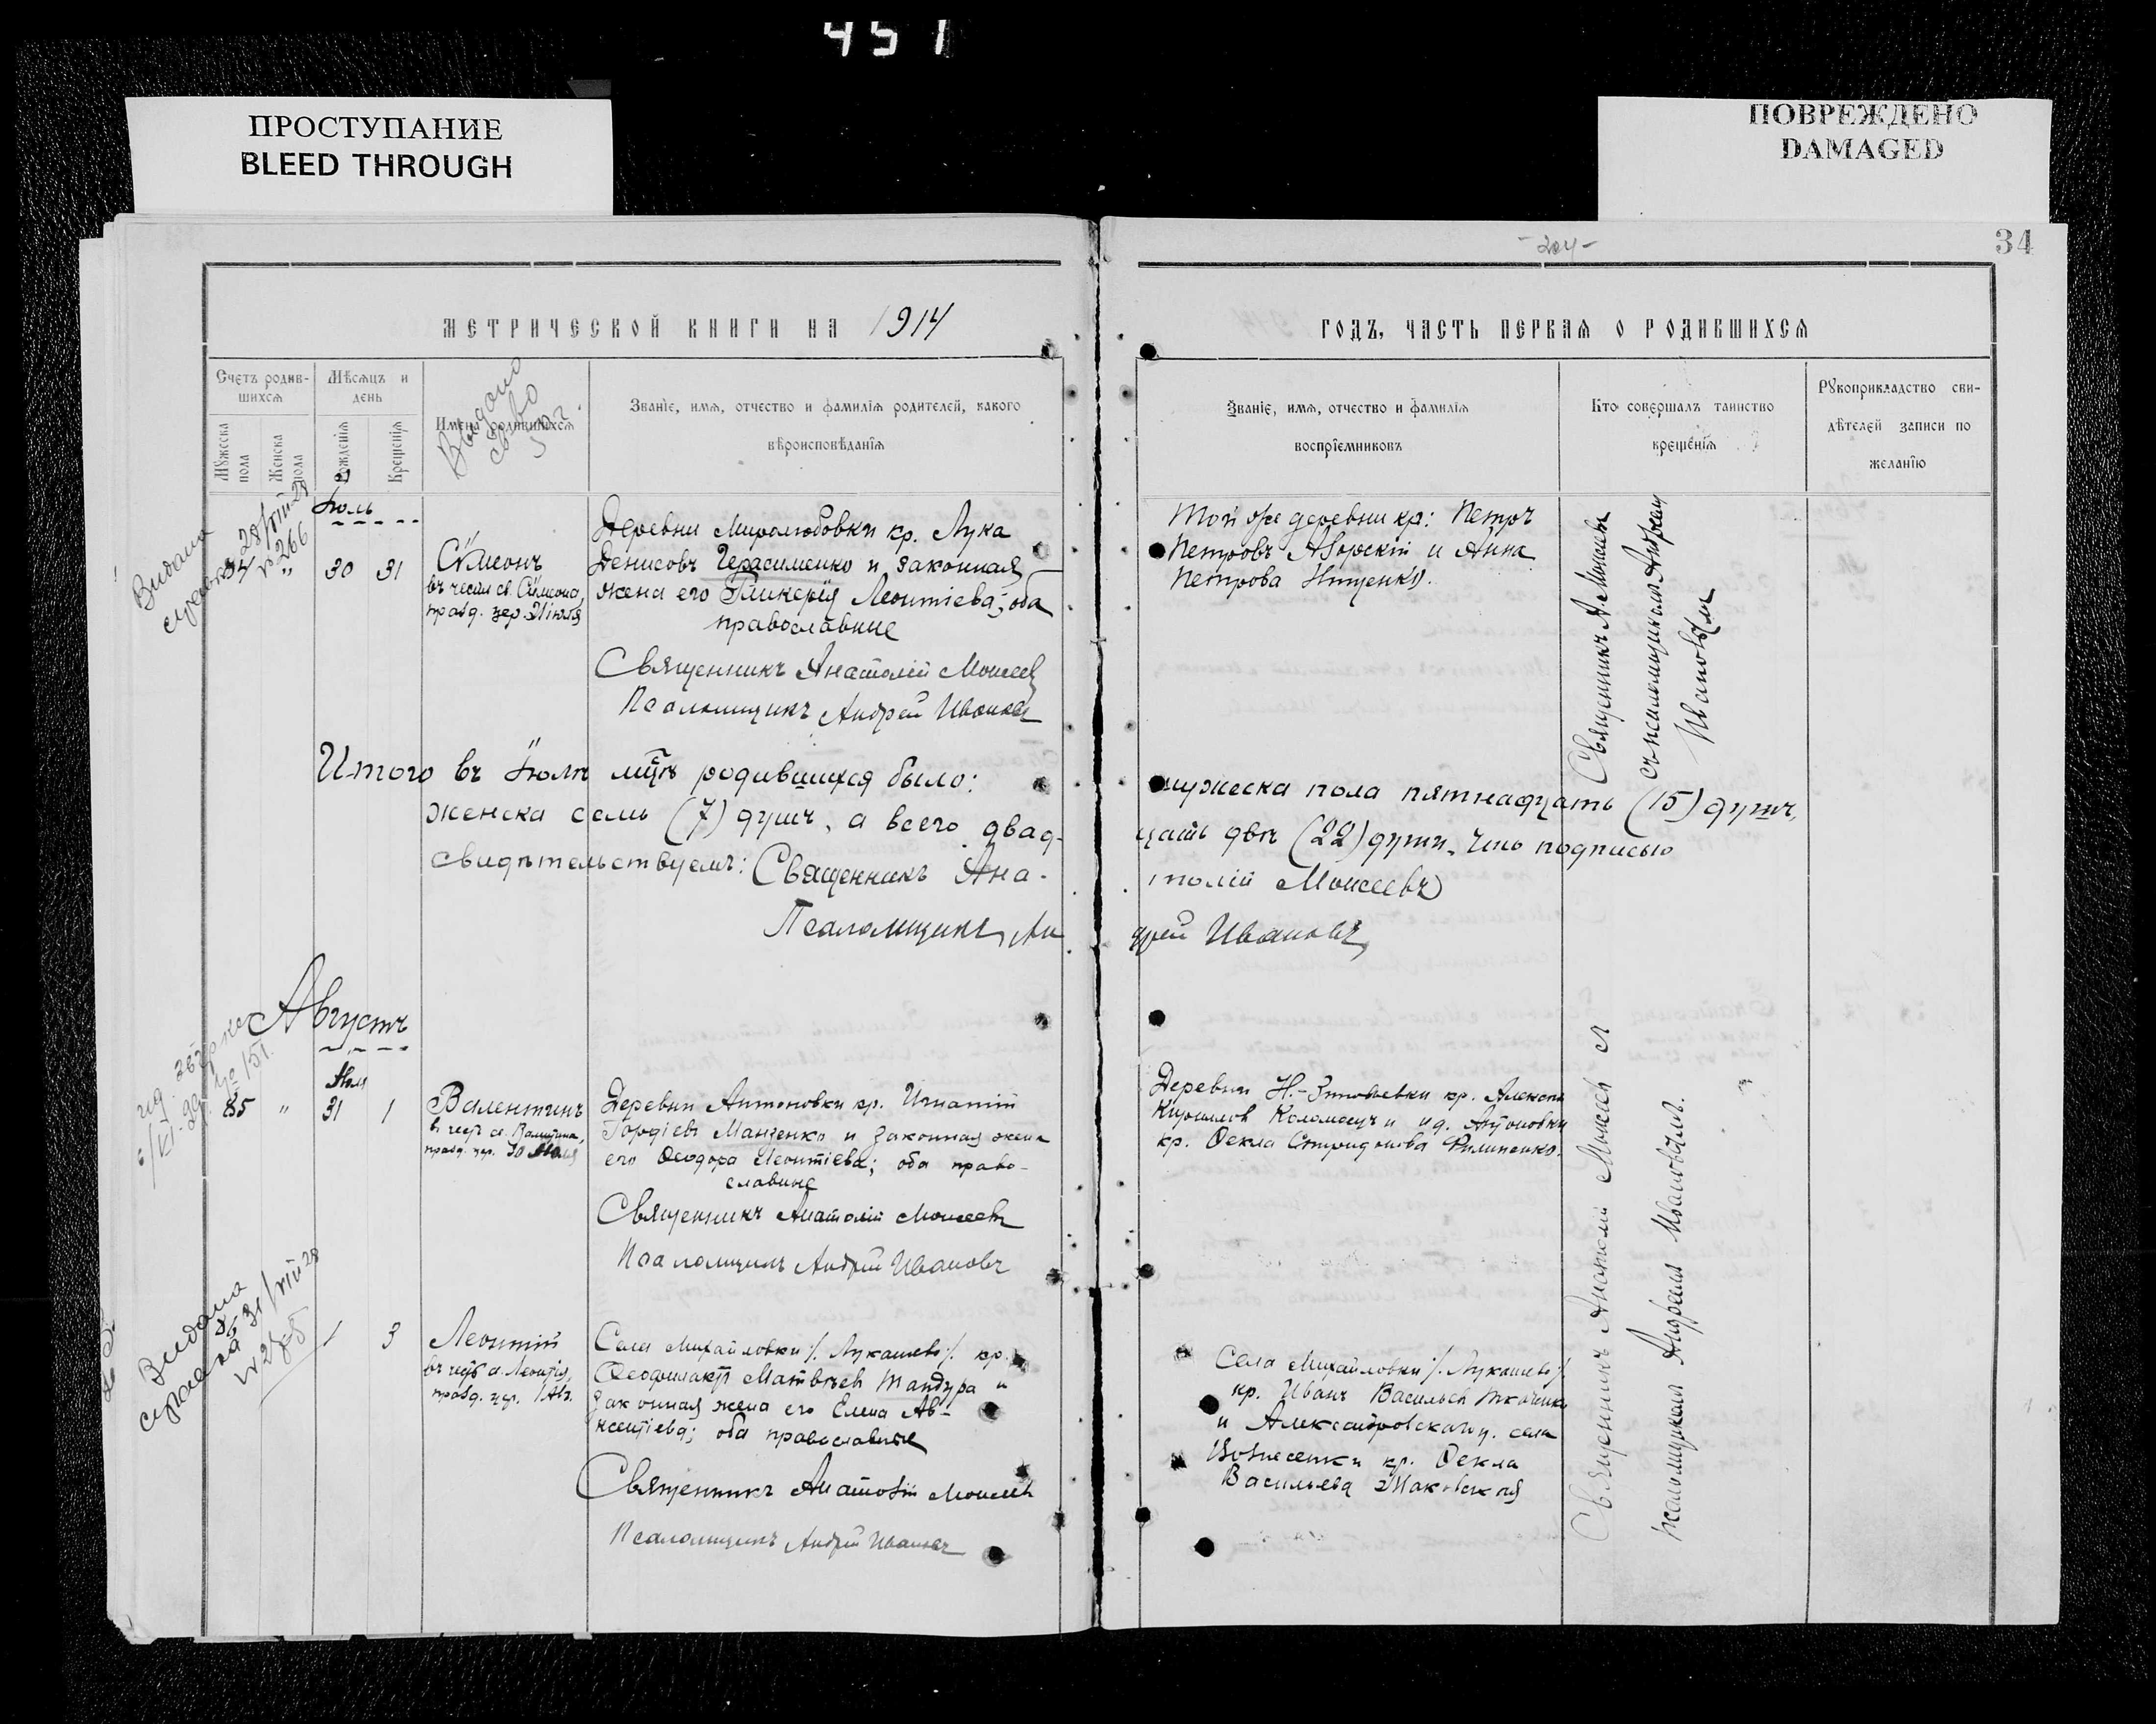 451
ПРОСТУПАНИЕ
BLEED THROUGH
ПОВРЕЖДЕНО
DAMAGED
34
МЕТРИЧЕСКОЙ КНИГИ НА 1914
ГОДЪ, ЧАСТЬ ПЕРВАЯ О РОДИВШИХСЯ
Счетъ родив-
шихся
Мѣсяцъ и
день
Мужеска
пола
Женска
пола
Рожденія
Крещенія
Имена родившихся
Званіе, имя, отчество и фамилія родителей, какого
вѣроисповѣданія
Званіе, имя, отчество и фамилія
воспріемниковъ
Кто совершалъ таинство
крещенія
Рукоприкладство сви-
дѣтелей записи по
желанію
Видана
28/VIII 28
№ 266
Іюль
84 " 30 31
Сѵмеонъ
въ честь св. Сѵмеона,
празд. цер. Іюля
Деревни Миролюбовки кр. Лука
Денисовъ Герасименко и законная
жена его Гликерія Леонтіева; оба
православные
Священникъ Анатолій Моисеев
Псаломщикъ Андрей Иванов
Той же деревни кр: Петръ
Петровъ Аворскій и Анна
Петрова
Священникъ А. Моисеевъ
съ псаломщикомъ Андреем
Ивановым
Итого въ Іюлѣ мцѣ родившихся было: мужеска пола пятнадцать (15) душъ,
женска семь (7) душъ, а всего двад- цать двѣ (22) души, что подписью
свидѣтельствуемъ: Священникъ Ана- толій Моисеевъ
Псаломщикъ Ан дрей Ивановъ
Августъ
85 " 31 1
Валентинъ
въ честь св. Валентина,
празд. цер. 30
Деревни Антоновки кр. Игнатій
Гордіевъ Манженко и законная жена
его Ѳеодора Леонтіева; оба право-
славные
Священникъ Анатолій Моисеевъ
Псаломщикъ Андрей Ивановъ
Деревни Н.- кр. Алексѣй
Кирилловъ и д. Антоновки
кр. Ѳекла Спиридонова Филипенко.
Видана
31/VIII 28
86 1 3
Леонтій
въ честь св. Леонтія,
празд. цер. 1 Авг.
Села Михайловки /. Лукашево /. кр.
Ѳеофилактъ Матвѣевъ Тандура и
законная жена его Елена Ав-
ксентіева; оба православные
Священникъ Анатолій Моисеев
Псаломщикъ Андрей Ивановъ
Села Михайловки /. Лукашево /.
кр. Иванъ Васильевъ Ткаченко
и Александровскаго у. села
Вознесенки кр. Ѳекла
Васильева Маковская
Священникъ Анатолій Моисеев
псаломщикомъ Андреемъ Ивановымъ.